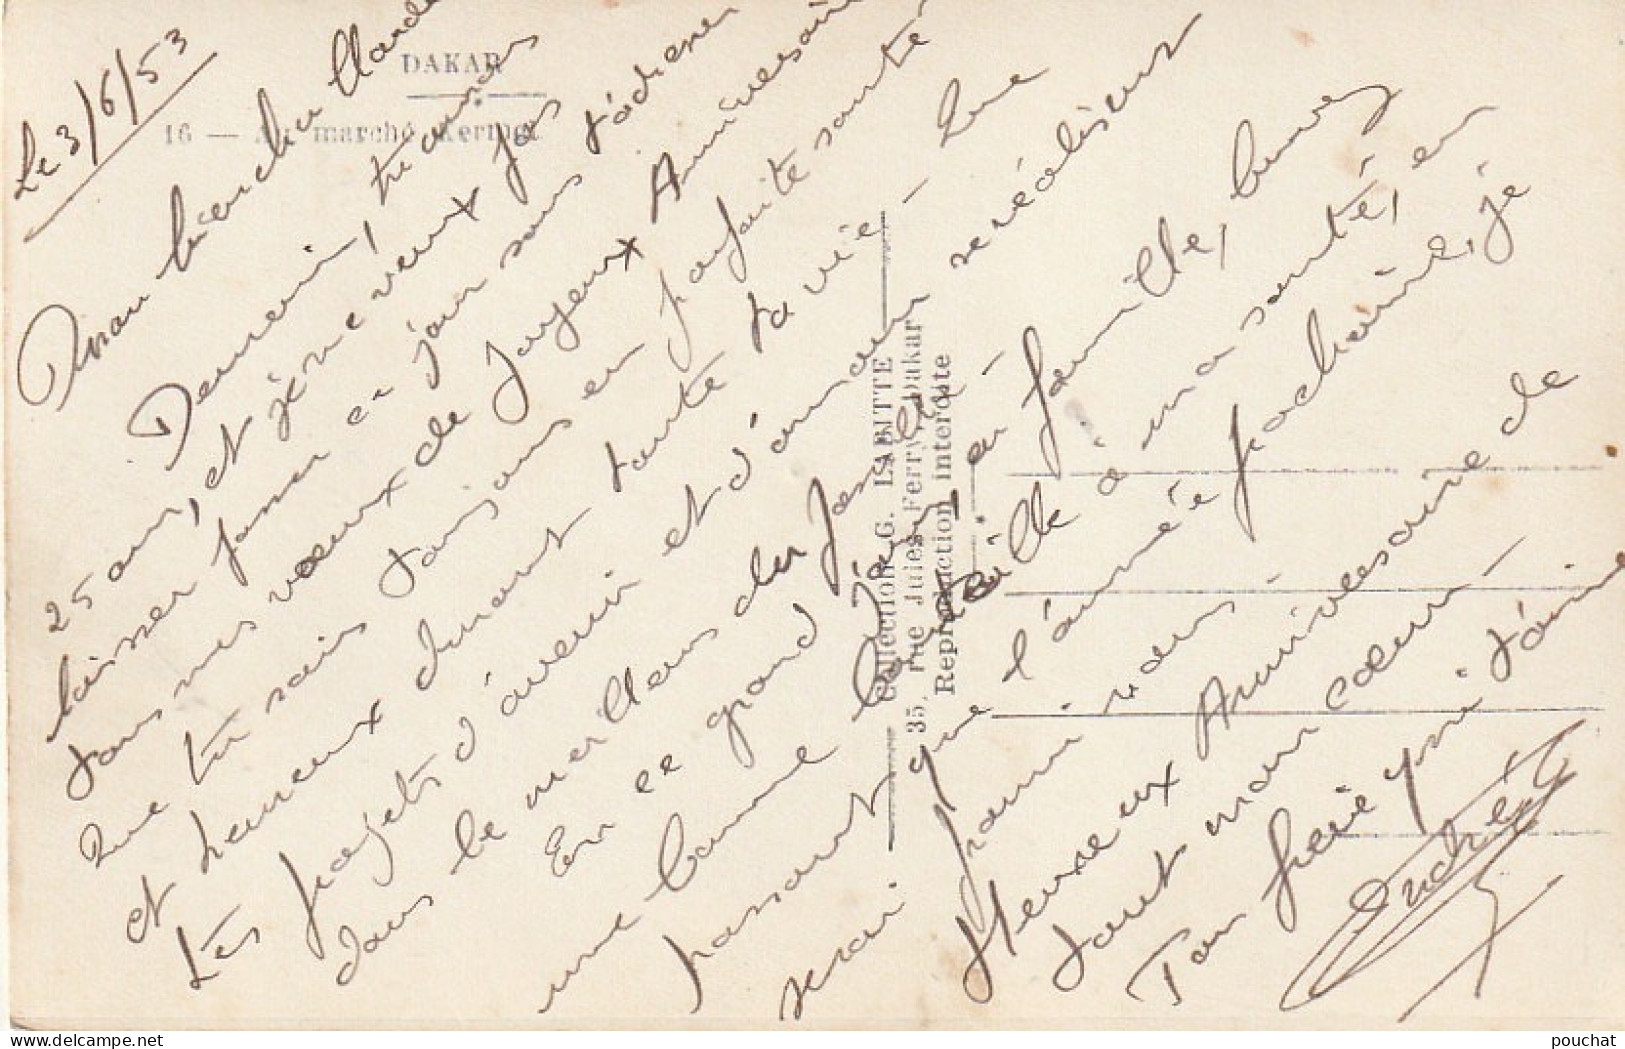 DAKAR
16 — Au marché Kermel
Le 3/6/53
Mon bien cher Claude
Demain, tu auras
25 ans, et je ne veux pas
laisser passer ce jour sans t'adresser
tous mes vœux de Joyeux Anniversaire
Que tu sois toujours en parfaite santé
et heureux durant toute ta vie - Que
Les projets d'avenir et d'amour se réalisent
dans le meilleur des
En ce grand jour, en famille, buvez
une bonne bouteille à ma santé, en
pensant que l'année prochaine, je
serai parmi vous
Heureux Anniversaire de
tout mon cœur -
Ton frère qui t'aime
André
Collection G. LABITTE
35, rue Jules Ferry, Dakar
Reproduction interdite
pouchat